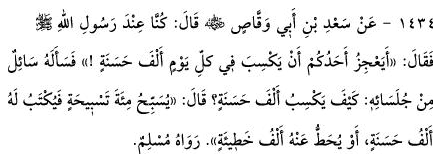 ١٤٣٤ - عَنْ سَعْدِ بْنِ أَبِي وَقَّاصٍ ﷺ قَالَ: كُنَّا عِنْدَ رَسُولِ اللهِ ﷺ
فَقَالَ: «أَيَعْجِزُ أَحَدُكُمْ أَنْ يَكْسِبَ فِي كلِّ يَوْمٍ أَلْفَ حَسَنَةٍ !» فَسَأَلَهُ سَائِلٌ
مِنْ جُلَسَائِهِ: كَيْفَ يَكْسِبُ أَلْفَ حَسَنَةٍ؟ قَالَ: «يُسَبِّحُ مِئَةَ تَسْبِيحَةٍ فَيُكْتَبُ لَهُ
أَلْفُ حَسَنَةٍ، أَوْ يُحَطُّ عَنْهُ أَلْفُ خَطِيئَةٍ». رَوَاهُ مُسْلِمٌ.